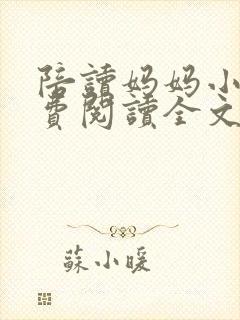 陪讀妈妈小
費閱讀全文
蘇小暖